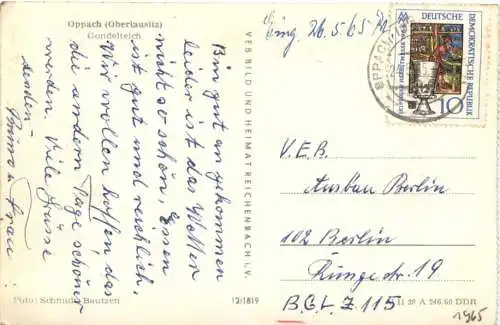 Oppach (Oberlausitz)
Gondelteich
Bin gut angekommen
leider ist das Wetter
nicht so schön, Essen
ist gut und reichlich.
Wir wollen hoffen das
die andern Tage schöner
werden. Viele Grüsse
senden
Bruno u. Frau
VEB BILD UND HEIMAT REICHENBACH i. V.
Foto: Schmidt, Bautzen
12/1819
Eing. 26.5.65
DEUTSCHE
DEMOKRATISCHE REPUBLIK
10
OPPACH
V.E.B.
Ausbau Berlin
102 Berlin
Rungestr. 19
B.G.L. Z. 115
A 246 60 DDR
1965